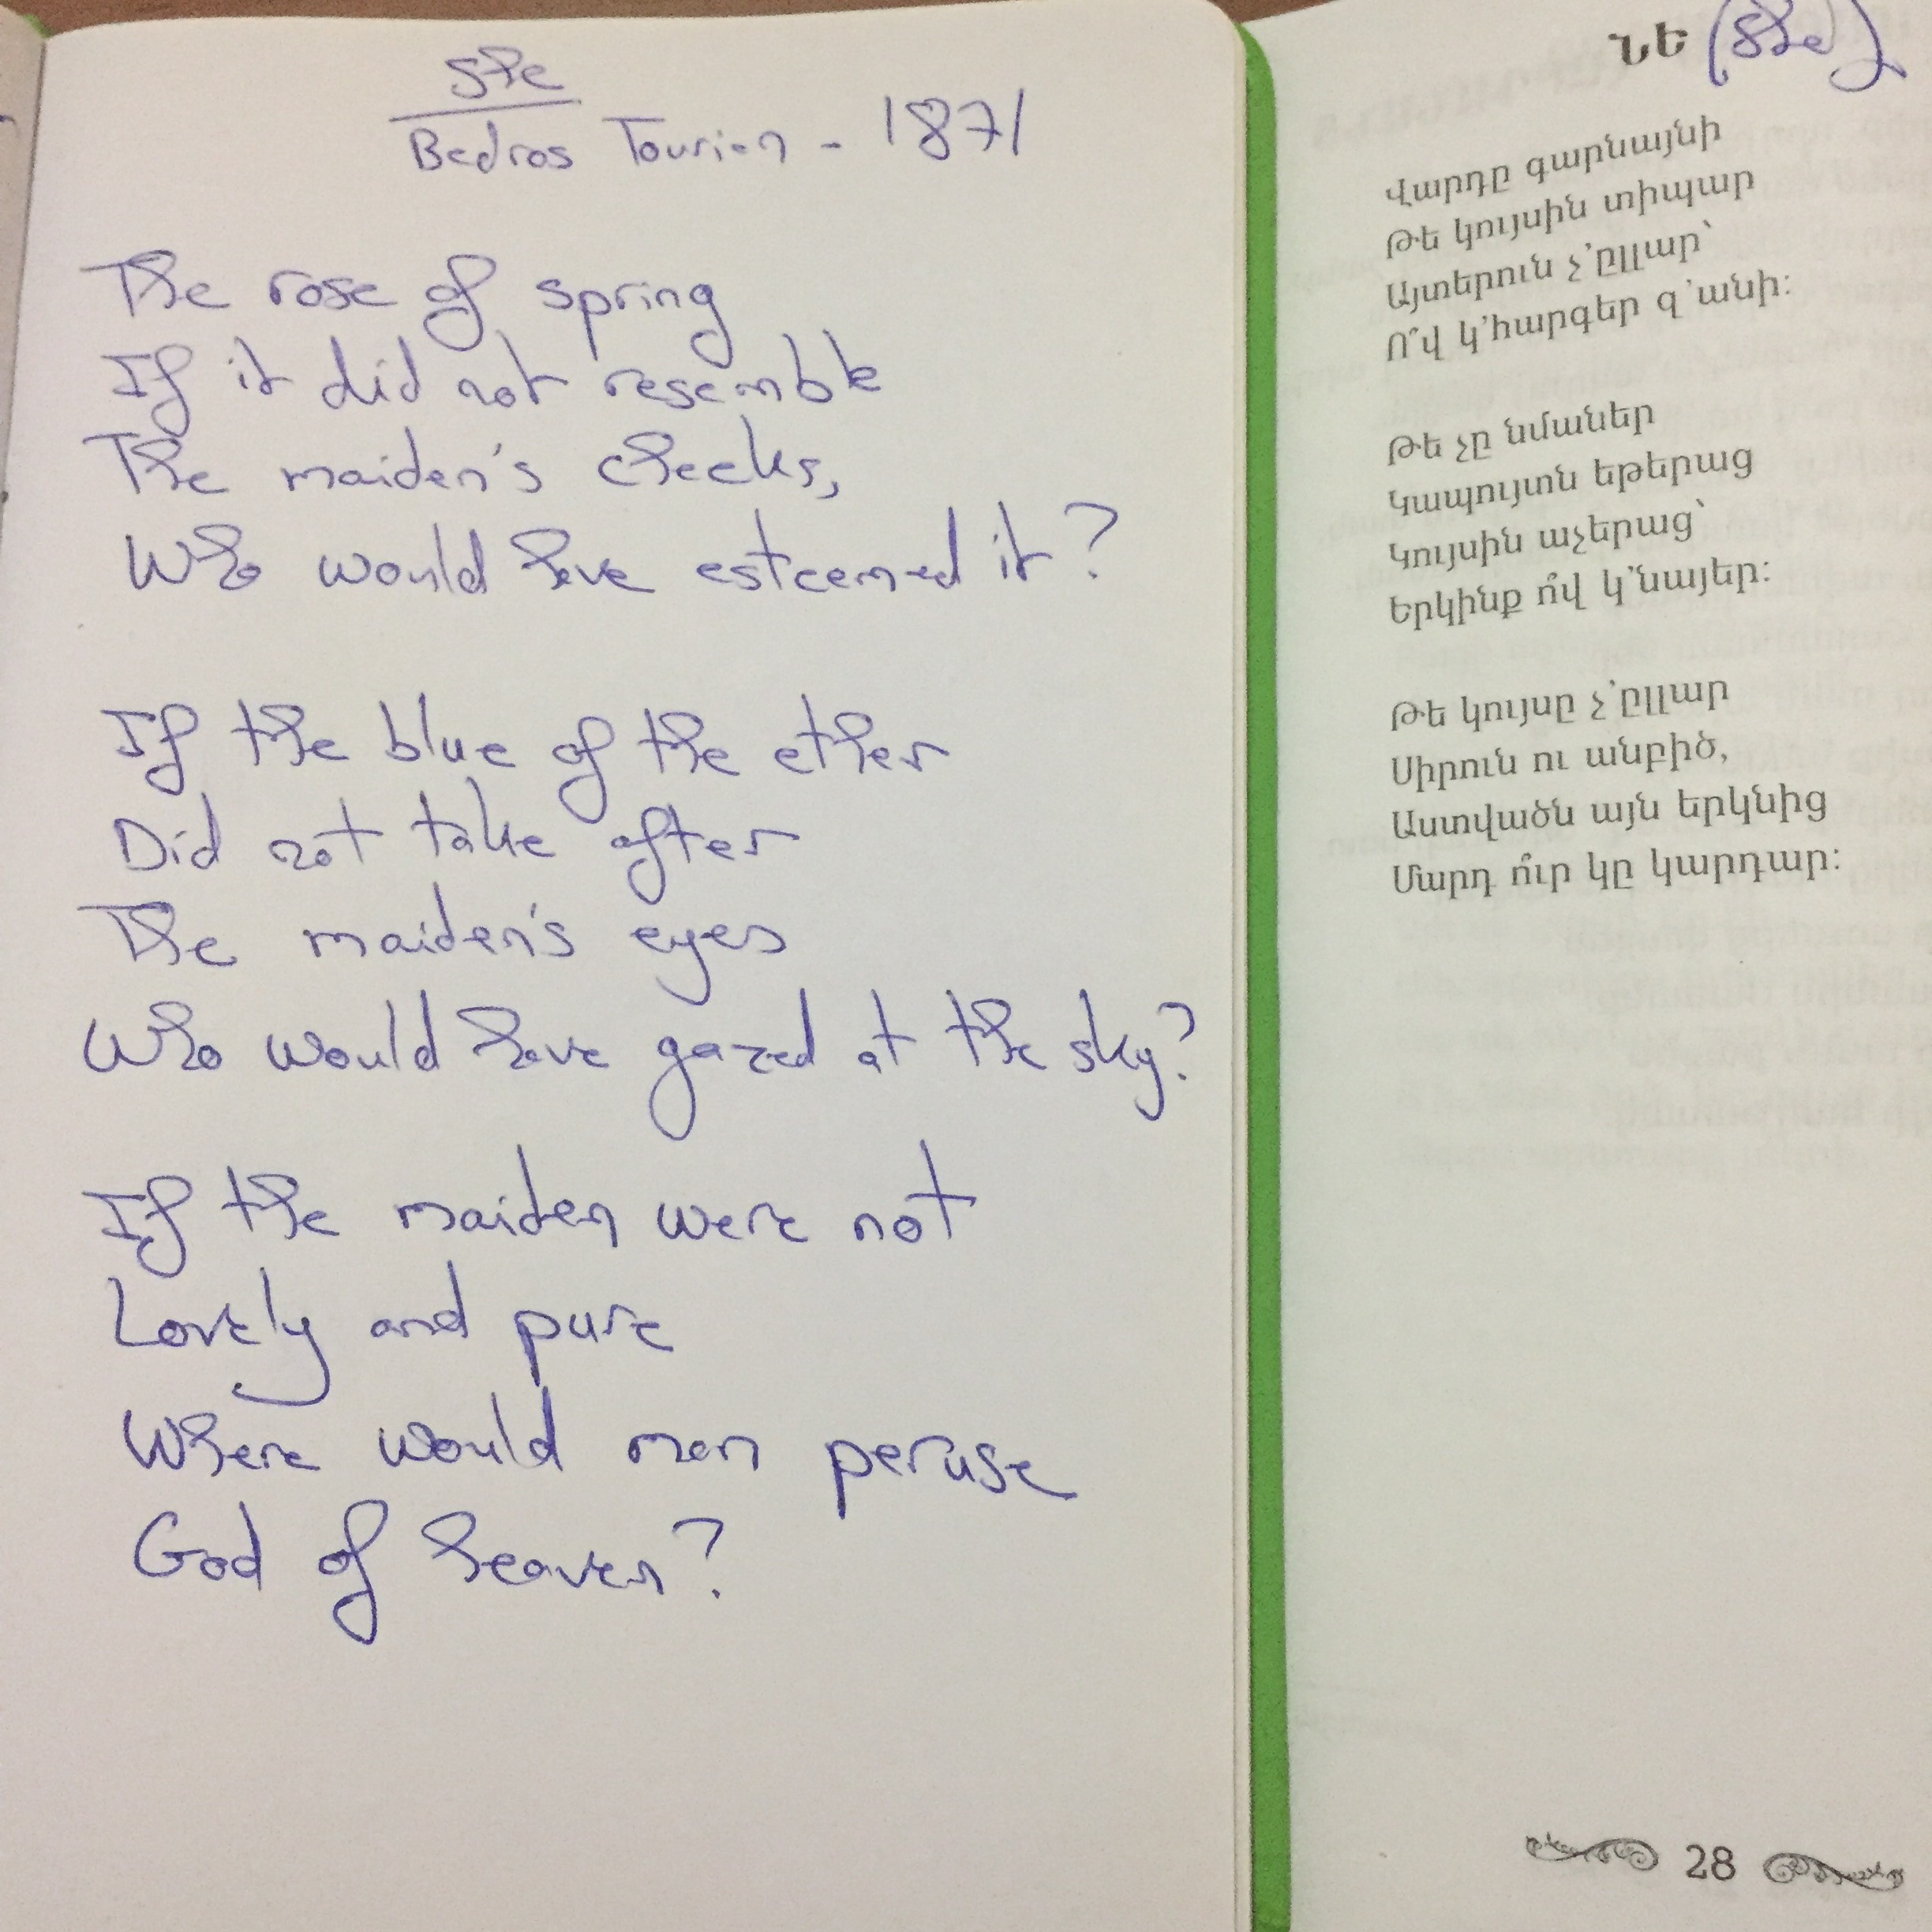 She
Bedros Tourian - 1871
The rose of spring
If it did not resemble
The maiden's cheeks,
Who would have esteemed it?
If the blue of the ether
Did not take after
The maiden's eyes
Who would have gazed at the sky?
If the maiden were not
Lovely and pure
Where would man peruse
God of heaven?
ՆԷ (She)
Վարդը գարնայնի
Թե կույսին տիպար
Այտերուն չ՚ըլլար՝
Ո՞վ կ՚հարգեր զ՚անի:
Թե չը նմաներ
Կապույտն եթերաց
Կույսին աչերաց՝
Երկինք ո՞վ կ՚նայեր:
Թե կույսը չ՚ըլլար
Սիրուն ու անբիծ,
Աստվածն այն երկնից
Մարդ ո՞ւր կը կարդար:
28